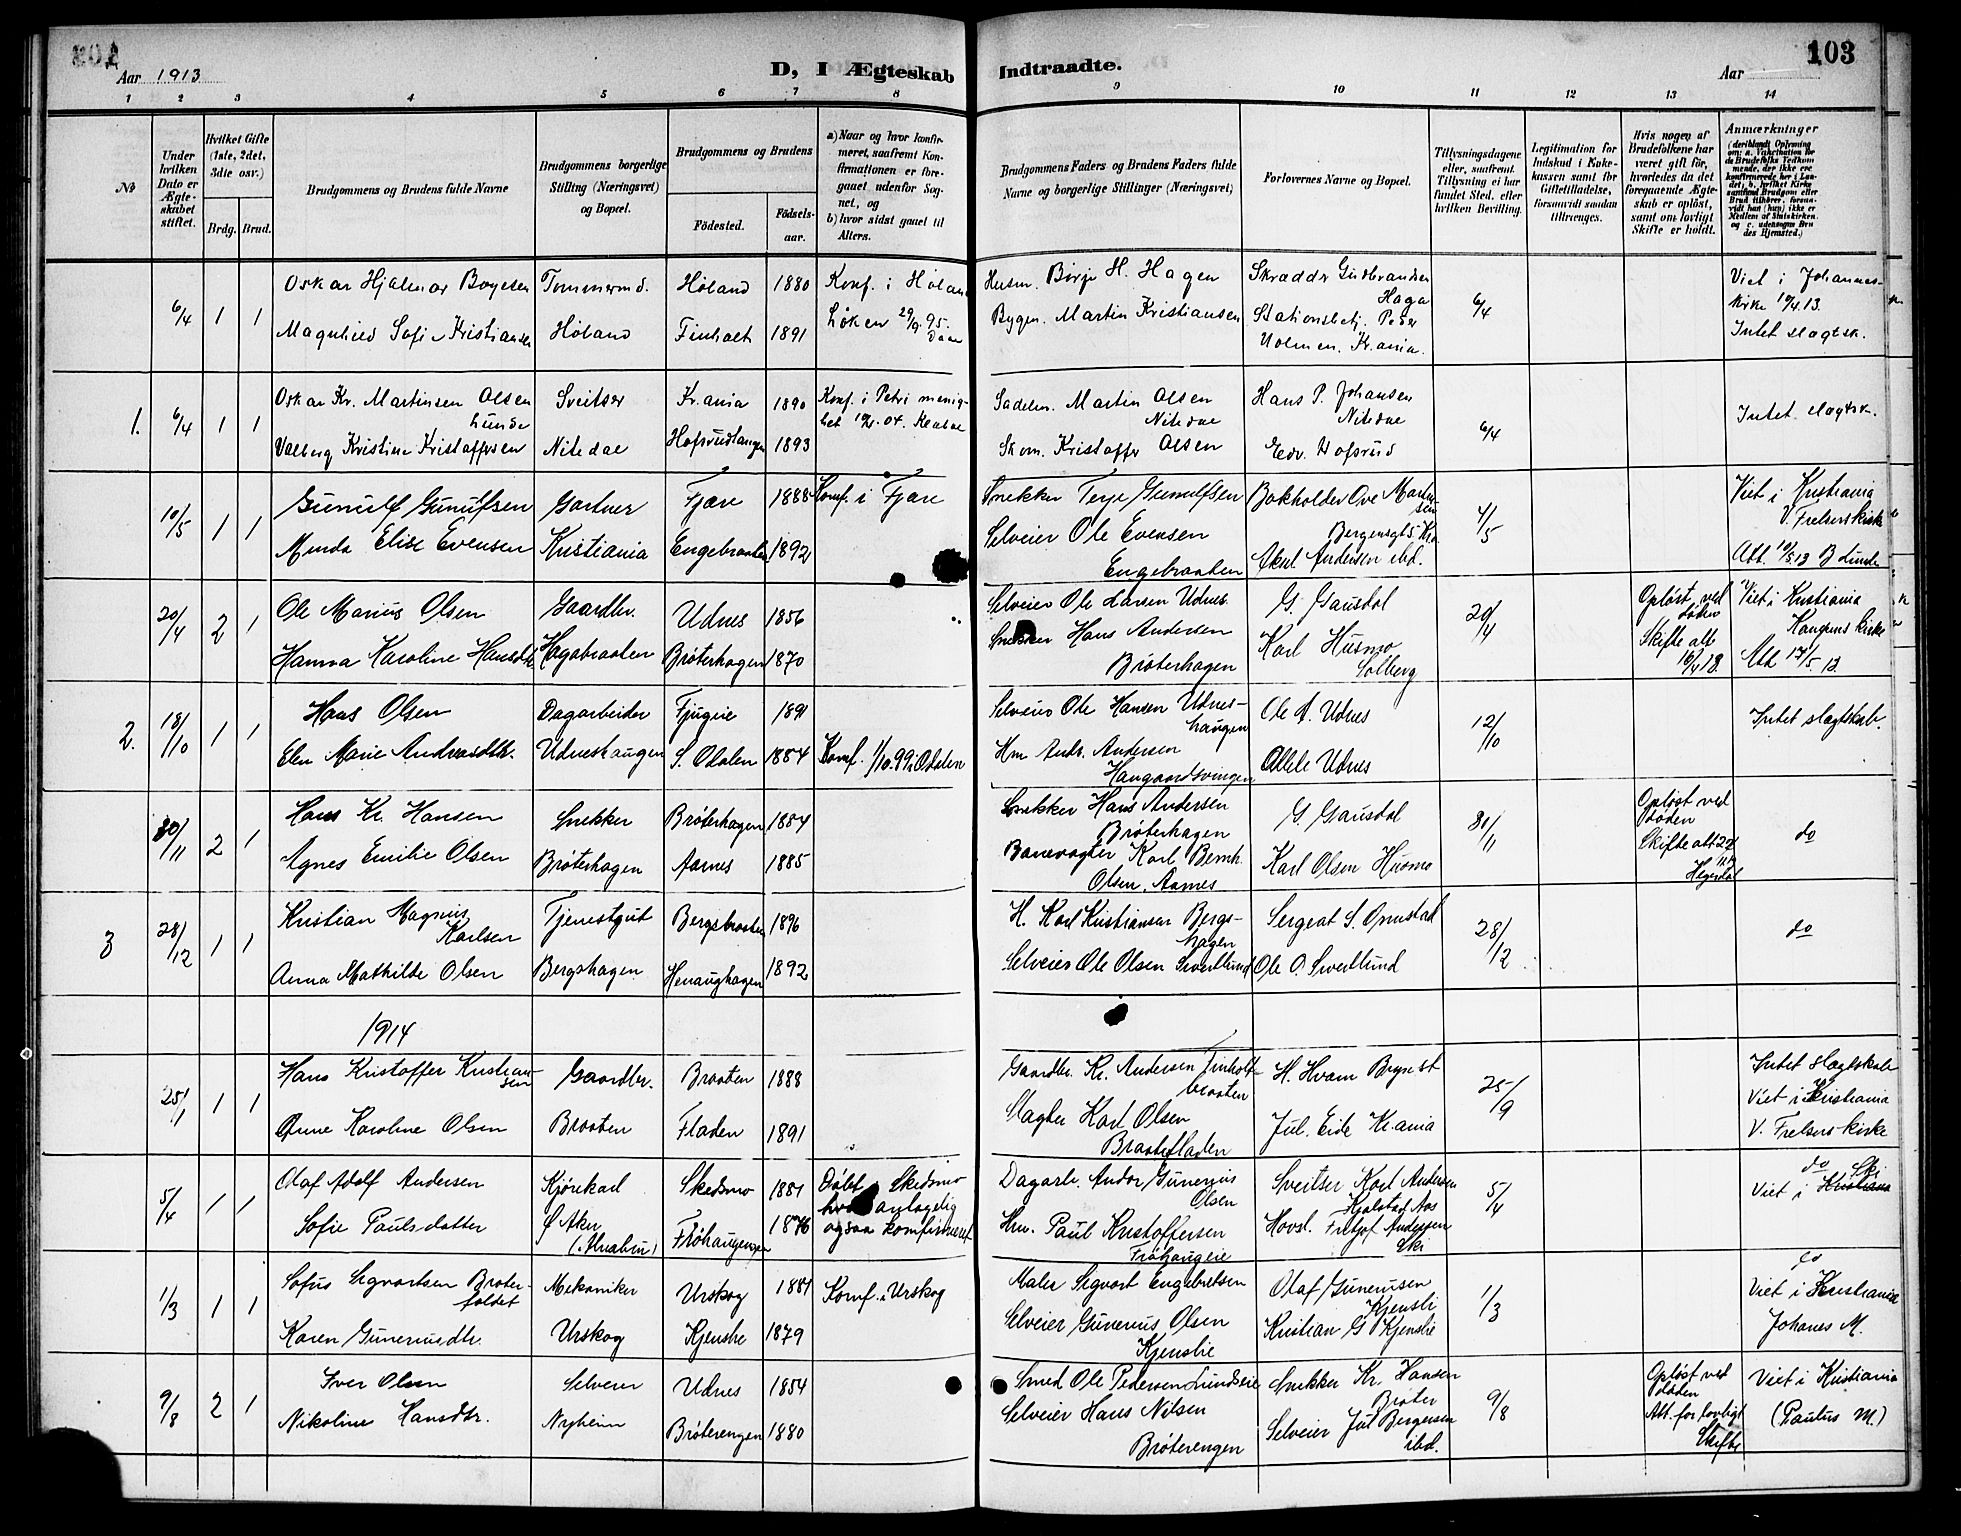 Aar 1913
D, I Ægteskab Indtraadte.
Aar
103
1 2 3 4 5 6 7 8 9 10 11 12 13 14
№
Under hvilken Dato er Ægteskabet stiftet.
Hvilket Gifte (1ste, 2det, 3die osv.)
Brdg. Brud.
Brudgommens og Brudens fulde Navne
Brudgommens borgerlige Stilling (Næringsvei) og Bopæl.
Brudgommens og Brudens
Födested. Födselsaar.
a) Naar og hvor konfirmeret, saafremt Konfirmationen er foregaaet udenfor Sognet, og
b) hvor sidst gaaet til Alters.
Brudgommens Faders og Brudens Faders fulde Navne og borgerlige Stillinger (Næringsvei)
Forlovernes Navne og Bopæl.
Tillysningsdagene eller, saafremt Tillysning ei har fundet Sted, efter hvilken Bevilling.
Legitimation for Indskud i Enkekassen samt for Giftetilladelse, forsaavidt saadan tiltrænges.
Hvis nogen af Brudefolkene har været gift för, hvorledes da det foregaaende Ægteskab er oplöst, samt om lovligt Skifte er holdt.
Anmærkninger
6/4 1 1 Oskar Hjalmar Boyesen Tømmermd. Høland 1880 Konf. i Høland Husm. Børje H. Hagen Skrædder Gudbrandsen Haga 6/4 Viet i Johanneskirke 10/4.13.
Magnhild Sofie Kristiansen Høland Finholt 1891 Løken 29/9.95. Bygm. Martin Kristiansen Stationsbetj. Peder Holmen. Kr.ania. Intet slægtsk.
1. 6/4 1 1 Oskar Kr. Martinsen Olsen Lunde Sveitser Kr.ania 1890 Konf. i Petri menighet Sadelm. Martin Olsen Nitedal Hans P. Johansen Nitedal 6/4 Intet slægtsk.
Valborg Kristine Kristoffersen Nitedal Hofsrudtangen 1893 Skom. Kristoffer Olsen Edv. Hofsrud
10/5 1 1 Gunulf Gunulfsen Gartner Fjære 1888 Konf. i Fjære Snekker Terje Gunulfsen Bokholder Ove Martinsen Bergensgt 5 Kra 4/5 Viet i Kristiania V. Frelsers kirke
Minda Elise Evensen Kristiania Engebraaten 1892 Selveier Ole Evensen Engebraaten Aksel Andersen ibd. Att. 10/5 13
20/4 2 1 Ole Marius Olsen Gaardbr. Udnes 1856 Selveier Ole Larsen Udnes. G. Gausdal 20/4 Opløst ved døden Viet i Kristiania Kampens kirke
Hanna Karoline Hansdtr. Hagabraaten Brøterhagen 1870 Snekker Hans Andersen Brøterhagen Karl Husmo Solberg Skifte att 16/4 13. Att 14/5 13.
2. 18/10 1 1 Hans Olsen Dagarbeider Fjugeie 1891 Selveier Ole Hansen Udneshaugen Ole A. Udnes 12/10 Intet slægtskab.
Elen Marie Andreasdtr. Udneshaugen S. Odalen 1884 Konf. 1/10.99 i Odalen Hm Andr. Andersen Haugaardsvingen Udnes
30/11 2 1 Hans Kr. Hansen Snekker Brøterhagen 1884 Snekker Hans Andersen Brøterhagen G. Gausdal 30/11 Opløst ved døden do
Agnes Emilie Olsen Brøterhagen Aarnes 1885 Banevogter Karl Bernh. Olsen, Aarnes Karl Olsen Husmo Skifte att 24
3 28/12 1 1 Kristian Magnus Karlsen Tjenestgut Bergsbraaten 1896 H. Karl Kristiansen Bergshagen Sergeat S. Opnustad 28/12 do
Anna Mathilde Olsen Bergshagen Henaughagen 1892 Selveier Ole Olsen Svedlund Ole O. Svedlund
1914
25/1 1 1 Hans Kristoffer Kristiansen Gaardbr. Braaten 1888 Gaardbr. Kr. Andersen Finholtbraaten H. Hvam 25/9 Intet Slægtskab
Anne Karoline Olsen Braaten Fladen 1891 Slagter Karl Olsen Braatefladen Jul. Eide Kr.ania Viet i Kristiania V. Frelsers kirke
5/4 1 1 Olaf Adolf Andersen Kjørekarl Skedsmo 1881 Døbt i Skedsmo Dagarb. Andor Gunerius Olsen Sveitser Karl Andersen 5/4 do Viet i Ski
Sofie Paulsdatter Ø Aker (Alnabru) Frøhaugengen 1876 hvor antagelig ogsaa konfirmeret Hm. Paul Kristoffersen Frøhaugeie Hovsl. Andersen Ski
1/3 1 1 Sofus Sigvartsen Braterfoldet Mekaniker Urskog 1881 Konf. i Urskog Maler Sigvart Engebretsen Olaf Gunerusen Kjensli 1/3 do Viet i Kristiania
Karen Guneriusdtr. Urskog Kjenslie 1879 Selveier Gunerius Olsen Kjenslie Kristian G Kjenslie Johanes M.
9/8 2 1 Iver Olsen Selveier Udnes 1854 Smed Ole Pedersen Lundseie Snekker Kr. Hansen Brøter 9/8 Opløst ved døden Viet i Kristiania
Nikoline Hansdtr. Nyheim Brøterengen 1880 Selveier Hans Nilsen Brøterengen Selveier Jul Bergersen ibd. Att. for lovligt Skifte (Paulus M.)